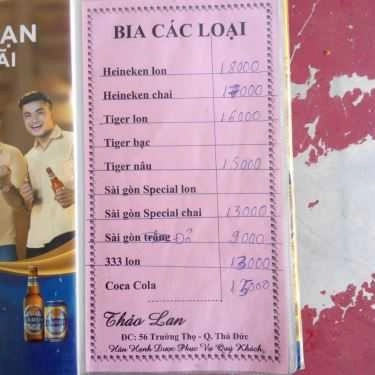 ẠN
ÃI
BIA CÁC LOẠI
Heineken lon 18000
Heineken chai 17000
Tiger lon 16000
Tiger bạc
Tiger nâu 15000
Sài gòn Special lon
Sài gòn Special chai 13000
Sài gòn trắng Đỏ 9000
333 lon 13000
Coca Cola 15000
Thảo Lan
ĐC: 56 Trường Thọ - Q. Thủ Đức
Hân Hạnh Được Phục Vụ Quý Khách